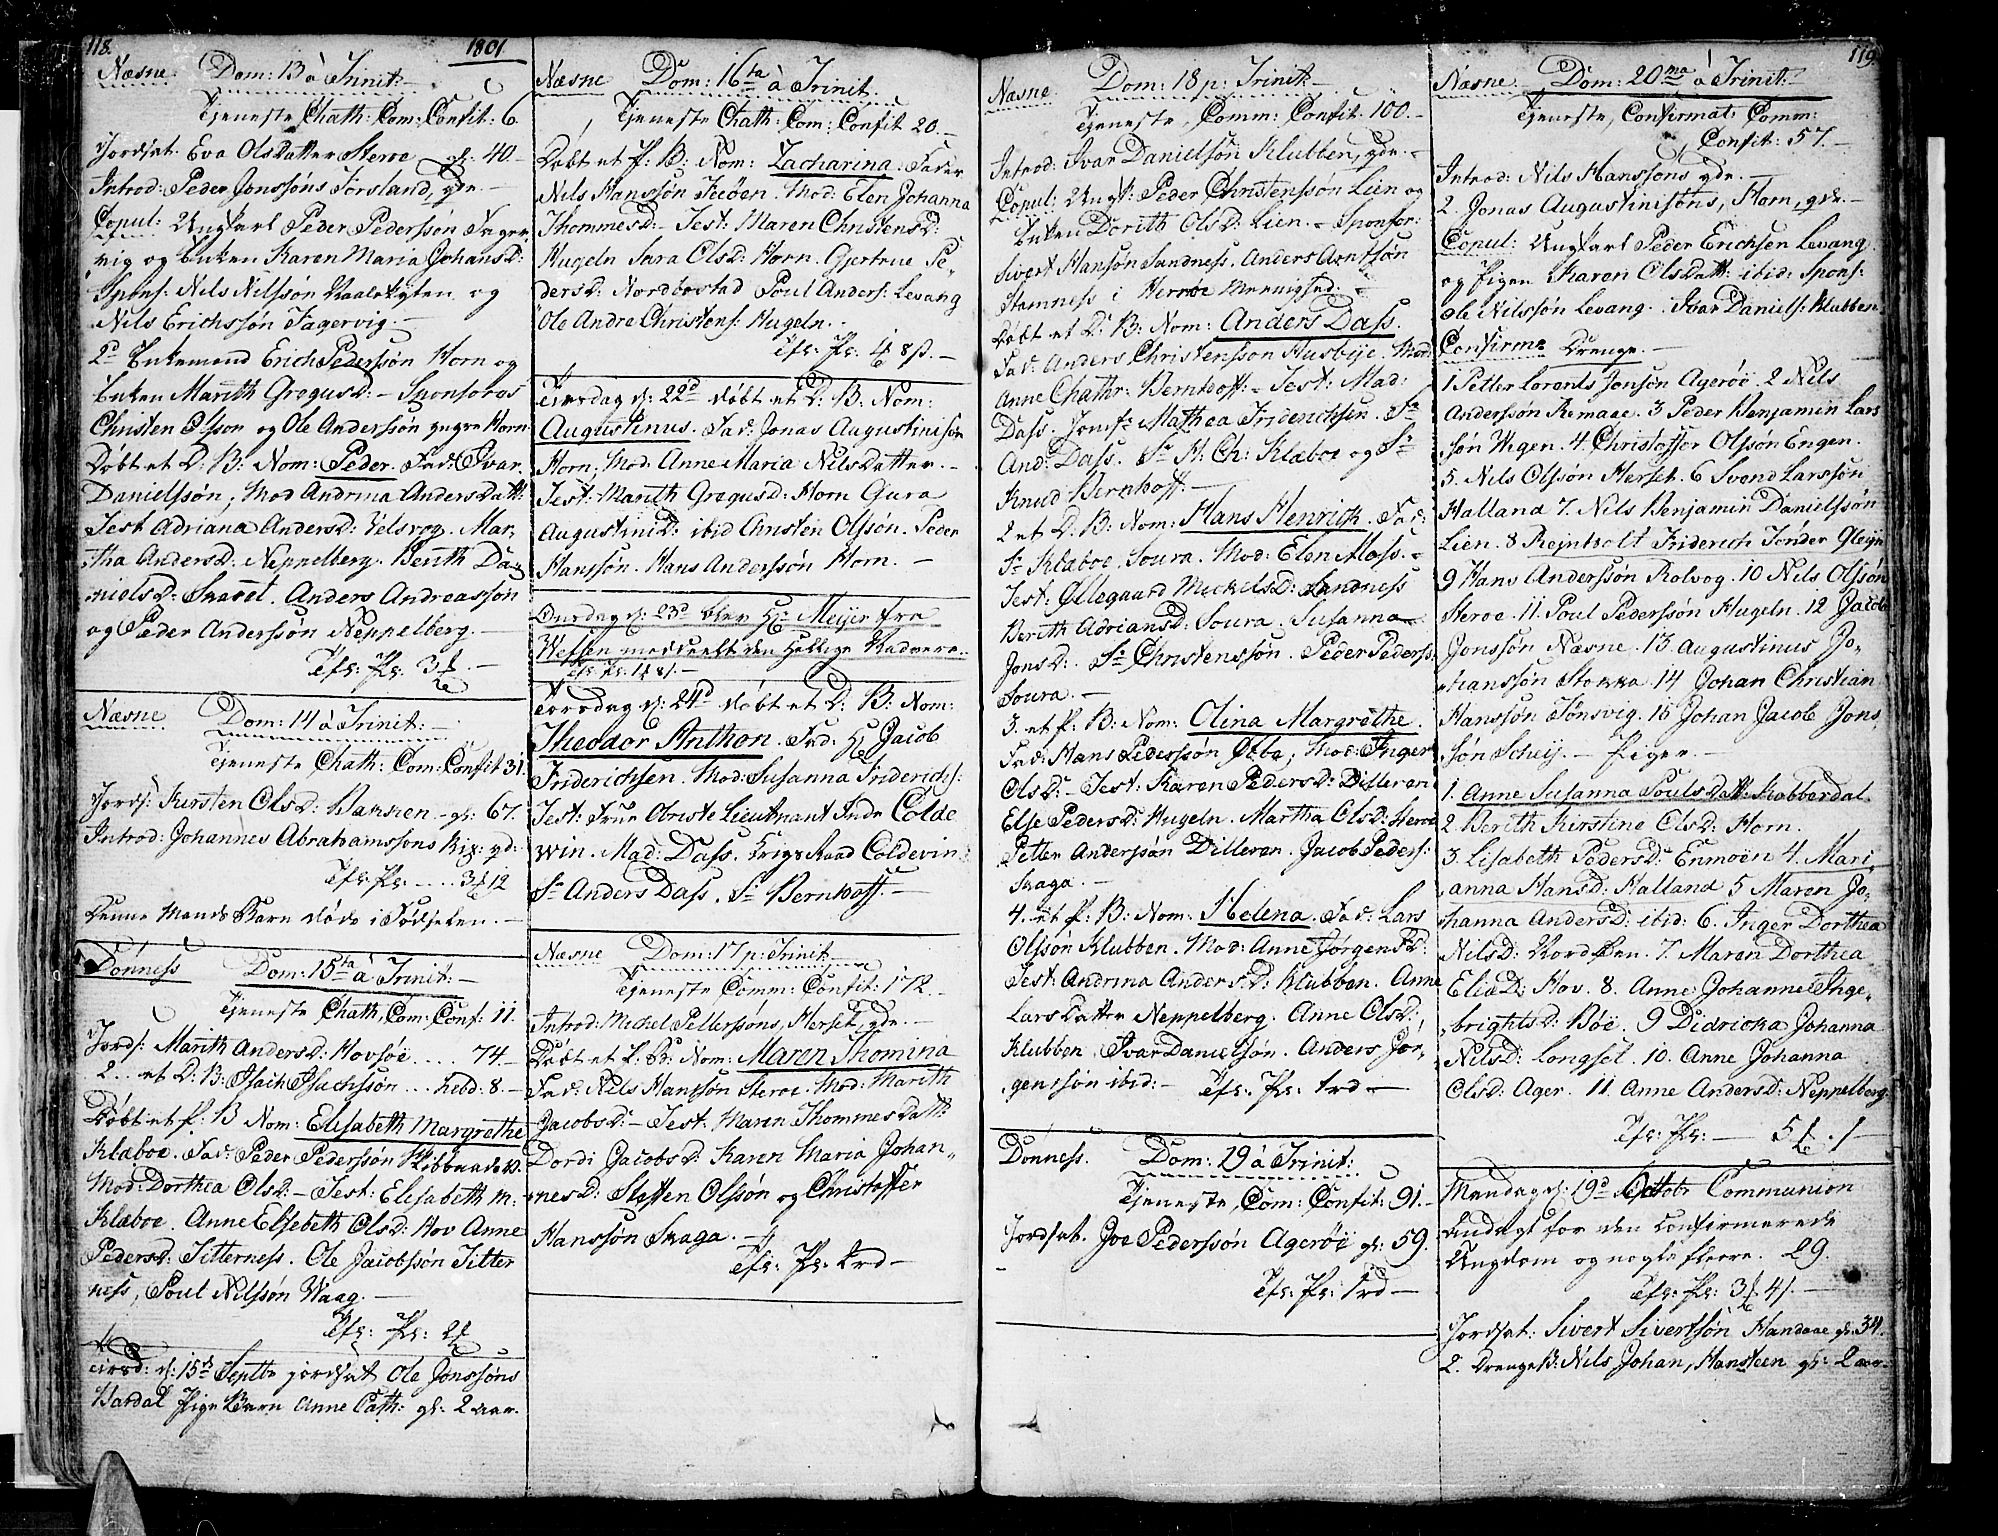 118.
1801
Næsne Dom: 13 à Trinit:
Tjeneste Chath: Com: Confit: 6.
Jordsat. Eva OlsDatter Herøe gl: 40 -
Introd: Peder Jonssøns Forsland, qde. -
Copul: Ungkarl Peder Pederssøn Fager,
vig og Enken Karen Maria JohansD:
Spons: Nils Nilssøn og
Nils Erichssøn Fagervig -
2d Enkemand Erich Pederssøn Horn og
Enken Marith GregusD: - Sponsores
Christen Olsson og Ole Anderssøn yngre Horn
Døbt et D: B: Nom: Peder. Fad: Ivar
Danielssøn, Mod Andrina AndersDatt:
Test Adriana AndersD: Velsvog. Mar-
tha AndersD: Neppelberg. Berith Da-
nielsD: Skavet. Anders Andreassøn
og Peder Anderssøn Neppelberg. -
Tfl: Pl: 3
Næsne Dom: 14 à Trinit: -
Tjeneste Chath: Com: Confit 31
Jords: Kirsten OlsD: Bakken - gl: 67.
Introd: Johannes Abrahamssøns Rix: qd:
Tfl: Pl: .... 3 12
Denne Mands Barn døde i Fødselen. -
Dønness Dom: 15ta à Trinit: -
Tjeneste Chath: Com: Conf: 11.
Jords: Marith AndersD: Hovsøe .... 74 -
2 .. et D: B: Isach Isachssøn ... 8. -
Døbt et P: B Nom: Elisabeth Margrethe
Klæboe. Fad: Peder Pederssøn
Mod: Dorthea OlsD: - Test: Elisabeth M:
Klæboe. Anne Elsebeth OlsD: Hov Anne
PedersD: Titterness. Ole Jacobssøn Titter
ness, Poul Nilssøn Waag. -
Tfl: Pl: 2
Tirsd: d: 15d Septbr jordsat Ole Jonssøns
Hardal Pige Barn Anne Cath: gl: 2 aar.
Næsne Dom: 16ta à Trinit.
Tjeneste Chath: Com: Confit 20. -
Døbt et P: B: Nom: Zacharina. Fader
Nils Hanssøn. Mod: Elen Johanna
ThommesD: - Test: Maren ChristensD:
Hugeln Sara OlsD: Horn. Gjertrue Pe-
dersD: Nordbostad Poul Anders: Levang
Ole Andre Christens: Hugeln. -
Tfl: Pl: 4 8 ß. -
Tirsdag d: 22d døbt et D: B: Nom:
Augustinus. Fad: Jonas Augustinisøn
Horn. Mod: Anne Maria NilsDatter. -
Test: Marith GregusD: Horn Gura
AugustiniD: ibid Christen Olssøn. Peder
Hanssøn. Hans Anderssøn Horn. -
Onsdag d: 23d blev Hr: Meijer fra
Wefsen meddeelt den Hellige Nadvere.
Tfl: Pl: 1
Torsdag d: 24d døbt et D: B: Nom:
Theodor Anthon. Fad: Hr Jacob
Friderichsen. Mod: Susanna Friderichs:
Test: Frue Obriste Lieutnant Colde
win. Mad: Dass. Krigs Raad Coldevin
Sr Anders Dass. Sr Bernhoff -
Næsne Dom: 17 p: Trinit -
Tjeneste Comm: Confit: 172.
Introd: Mickel Pettersøns, Herset, qde. -
Døbt et P: B: Nom: Maren Thomina
Fad: Nils Hanssøn Herøe. Mod: Marith
JacobsD: - Test: Maren ThommesDatt:
Dordi JacobsD: Karen Maria Johan-
nesD: Steffen Olssøn og Christoffer
Hanssøn Skaga. -
Tfl: Pl: 1rd -
Næsne Dom: 18 p: Trinit -
Tjeneste, Comm: Confit: 100. -
Introd: Ivar Danielsøn Klubben, qde. -
Copul: Ungk: Peder Christenssøn Lien og
Enken Dorith OlsD: Lien. - Sponsor:
Sivert Hansøn Sandness. Anders Arntsøn
Hamness i Herrøe Menighed. -
Døbt et D: B: Nom: Anders Dass.
Fad: Anders Christensson Husbije. Mod:
Anne Chathr: Bernhoff: - Test: Mad:
Dass. Jomfr: Mathea Friderichsen. Sr
And: Dass. Sr H: Ch: Klæboe og Sr
Knud Bernhoff. -
2 et D: B: Nom: Hans Henrich. Fad:
Sr Klæboe. Soura. Mod: Elen Moss. -
Test: Ollegaard MickelsD: Sandness
Berith AdriansD: Soura. Susanna
JonsD: Sr Christenssøn. Peder Peders:
Soura. -
3. et P: B: Nom: Olina Margrethe.
Fad: Hans Pederssøn, Mod: Inger
OlsD: - Test: Karen PedersD: Dilleren
Else PedersD: Hugeln. Martha OlsD: Herøe
Petter Anderssøn Dilleren. Jacob Peders:
Skaga. -
4. et P: B: Nom: Helena. Fad: Lars
Olssøn Klubben. Mod: Anne JørgensD:
Test: Andrina AndersD: Klubben. Anne
LarsDatter Neppelberg. Anne OlsD:
Klubben. Ivar Danielsøn. Anders Jør-
genssøn ibid: - Tfl: Pl: 1rd -
Dønness. Dom: 19 à Trinit:
Tjeneste, Com: Confit: 91. -
Jordsat. Joe Pederssøn Agerøe gl: 59.
Tfl: Pl: 1rd -
119.
Næsne Dom: 20ma à Trinit: -
Tjeneste, Confirmat: Comm:
Confit: 57. -
Introd: Nils Hanssøns qde. -
2. Jonas Augustinisøns, Horn, qde. -
Copul: Ungkarl Peder Ericksen Levang
og Pigen Karen OlsDatt: ibid: Spons:
Ole Nilssøn Levang. Ivar Daniels: Klubben
Confirme Drenge. -
1 Petter Lorents Jonsøn Agerøe. 2 Nils
Anderssøn Remaae. 3 Peder Benjamin Lars
søn Wigen. 4. Christoffer Olssøn Engen.
5. Nils Olssøn Herset. 6 Svend Larssøn
Halland 7. Nils Benjamin Danielssøn
Lien. 8 Rejnholt Friderich Tønder Glejn
9 Hans Anderssøn Rolvog. 10 Nils Olssøn
Herøe. 11. Poul Pederssøn Hugeln. 12 Jacob
Jonssøn Næsne. 13 Augustinus Jo-
hanssøn Stokka 14 Johan Christian
Hanssøn Tønsvig. 15 Johan Jacob Jons,
søn Scheij. - Piger. -
1. Anne Susanna PoulsDatt: Kobberdal
2 Berith Kirstine OlsD: Horn.
3. Lisabeth PedersD: Enmoen 4. Mari
anna HansD: Halland 5 Maren Jo,
hanna AndersD: ibid: 6. Inger Dorthea
NilsD: Nord Øen. 7. Maren Dorthea
EliæD: Hov. 8. Anne Johanne Inge,
brightsD: Bøe. 9 Didricka Johanna
NilsD: Longset. 10. Anne Johanna
OlsD: Ager. 11 Anne AndersD: Neppelberg.
Tfl: Pl: - 5
Mandag d: 19d Octobr Communion
Andagt for den Confirmerede
Ungdom og nogle fleere. 29.
Tfl: Pl: 3
Jordsat: Sivert Sivertsøn Handaae gl: 34.
2. Drenge B: Nils Johan, Hansteen gl: 2 aar.